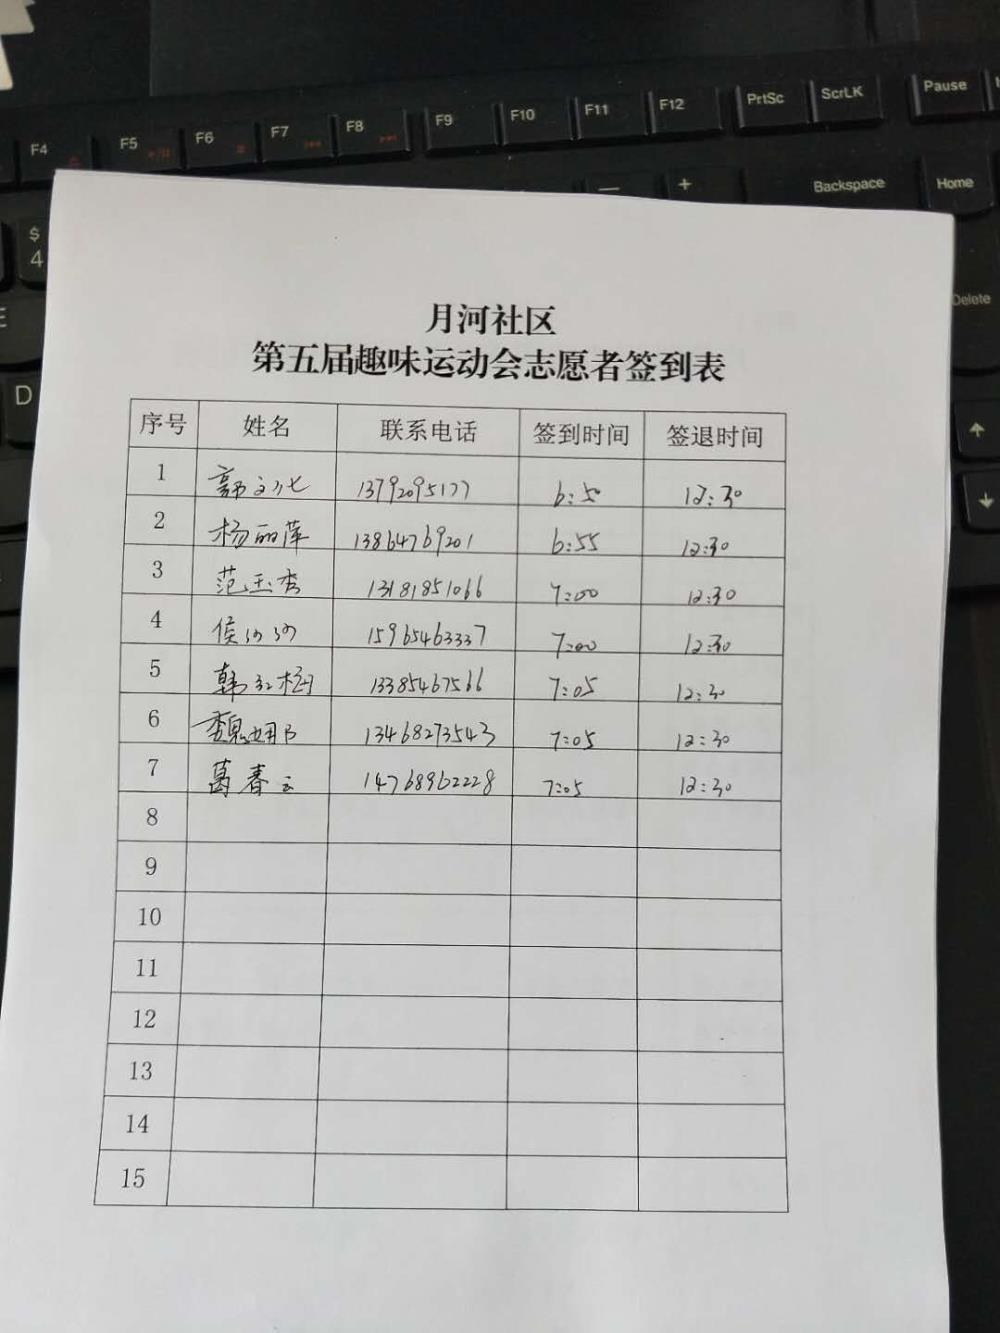 F4 F5 F6 F7 F8 F9 F10 F11 F12 PrtSc ScrLK Pause
— + Backspace Home
$
4
Delete
E
D
月河社区
第五届趣味运动会志愿者签到表
序号 姓名 联系电话 签到时间 签退时间
1 郭文化 13792095177 6:50 12:30
2 杨丽萍 13864769201 6:55 12:30
3 范玉杰 13181851066 7:00 12:30
4 侯 15965463337 7:00 12:30
5 韩红梅 13385467566 7:05 12:30
6 魏 13468273543 7:05 12:30
7 葛春云 14768962228 7:05 12:30
8
9
10
11
12
13
14
15